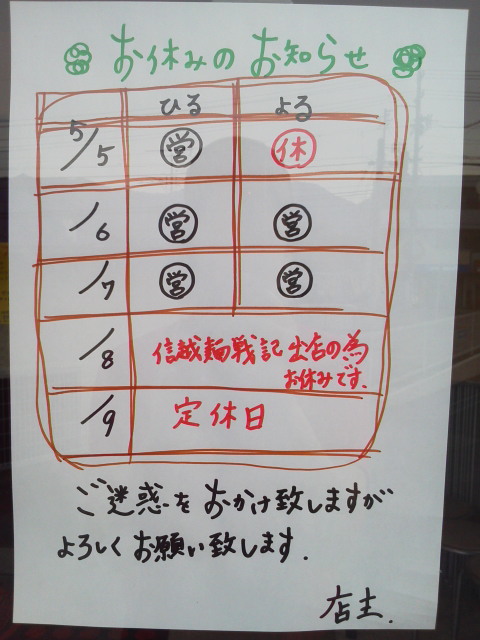 お休みのお知らせ
ひる よる
5/5 営 休
/6 営 営
/7 営 営
/8 信越麺戦記出店の為
お休みです.
/9 定休日
ご迷惑をおかけ致しますが
よろしくお願い致します.
店主.